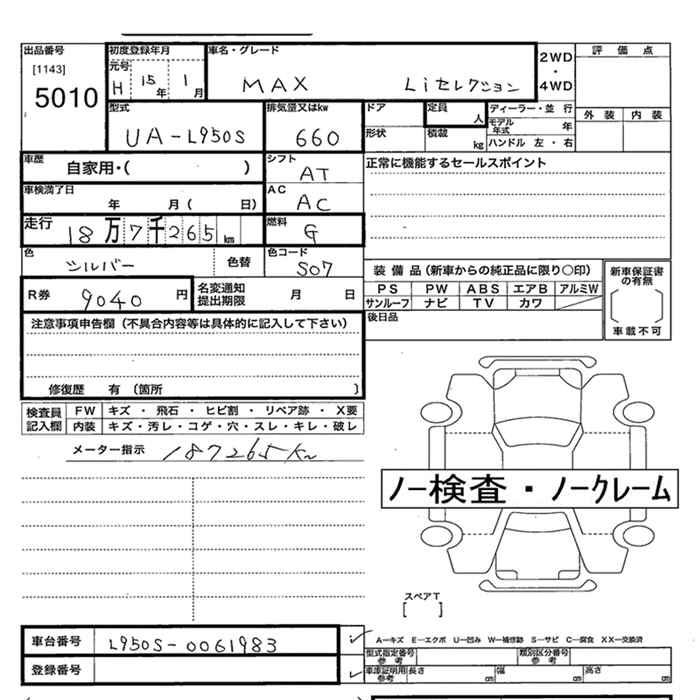 出品番号 初度登録年月 車名・グレード 2WD・4WD 評価点
[1143] 元号 H 15年 1月 MAX Liセレクション
5010 外装 内装
型式 排気量又はkw ドア 定員 人 ディーラー・並 行
UA-L950S 660 形状 積載 kg モデル年式 年
ハンドル 左・右
車歴 自家用・( ) シフト AT 正常に機能するセールスポイント
車検満了日 年 月( 日) AC AC
走行 18万7千265km 燃料 G
色 シルバー 色替 色コード S07
装備品(新車からの純正品に限り○印) 新車保証書の有無
R券 9040円 名変通知提出期限 月 日 PS PW ABS エアB アルミW
サンルーフ ナビ TV カワ
[ ]
注意事項申告欄(不具合内容等は具体的に記入して下さい) 後日品 車載不可
修復歴 有 [箇所 ]
検査員記入欄 FW キズ・飛石・ヒビ割・リペア跡・X要
内装 キズ・汚レ・コゲ・穴・スレ・キレ・破レ
メーター指示 187265km
ノー検査・ノークレーム
スペアT
[ ]
車台番号 L950S-0061983 A―キズ E―エクボ U―凹み W―補修跡 S―サビ C―腐食 XX―交換済
型式指定番号 参考 類別区分番号 参考
登録番号 車庫証明用 参考 長さ cm 幅 cm 高さ cm